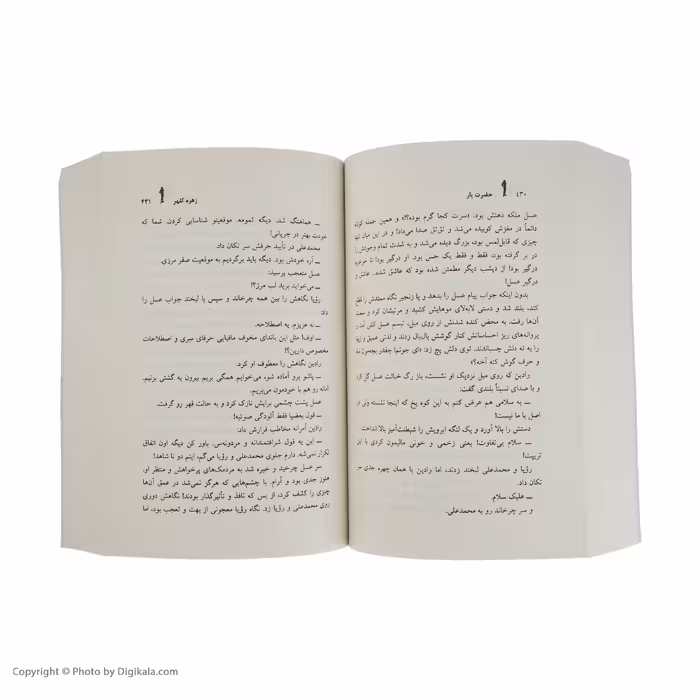 ۴۳۰ حضرت یار
عسل ملکه ذهنش بود. «سرت کجا گرم بوده؟!» و همین جمله کوتاه
دائماً در مغزش کوبیده می‌شد و تق‌تق صدا می‌داد! و در این میان تنها
چیزی که قابل‌لمس بود، بزرگ دیده می‌شد و به شدت تمام وجودش را
در بر گرفته بود، فقط و فقط یک حس بود. او درگیر بود! تا خرخره
درگیر بود! از دیشب دیگر مطمئن شده بود که عاشق شده. عاشق و
درگیر عسل!
بدون اینکه جواب پیام عسل را بدهد و یا زنجیر نگاه ممتدش را قطع
کند، بلند شد و دستی لابه‌لای موهایش کشید و مرتبشان کرد و
آن‌ها رفت. به محض کنده شدنش از روی مبل، تبسم عسل کش آمد و
پروانه‌های ریز احساسانش کنار گوشش بال‌بال زدند و لذتی عمیق و زیبا
را به ته دلش چسباندند. توی دلش پچ زد: «ای جونم! چقدر بچه‌مون
و حرف گوش کنه آخه؟»
رادین که روی مبل نزدیک او نشست، باز رگ خباثت عسل گل کرد
و با صدای نسبتاً بلندی گفت:
ـ یه سلامی هم عرض کنم به این کوه یخ که اینجا نشسته ولی در
اصل با ما نیست!
دستش را بالا آورد و یک لنگه ابرویش را شیطنت‌آمیز بالا انداخت.
ـ سلام بی‌تفاوت! یعنی زخمی و خونی مالیمون کردی با این
تربیت!
رؤیا و محمدعلی لبخند زدند، اما رادین با همان چهره جدی سر
تکان داد.
ـ علیک سلام
و سر چرخاند رو به محمدعلی.
زهره کلهر ۴۳۱
ـ هماهنگ شد. دیگه تمومه. موقعیتو شناسایی کردن. شما که
خودت بهتر در جریانی!
محمدعلی در تأیید حرفش سر تکان داد.
ـ آره خودش بود. دیگه باید برگردیم به موقعیت صفر مرزی.
عسل متعجب پرسید:
ـ می‌خواید برید لب مرز؟!
رؤیا نگاهش را بین همه چرخاند و سپس با لبخند جواب عسل را
داد:
ـ نه عزیزم. یه اصطلاحه.
ـ اوف! مثل این باندای مخوف مافیایی حرفای سری و اصطلاحات
مخصوص دارین؟!
رادین نگاهش را معطوف او کرد.
ـ پاشو برو آماده شو، می‌خوایم همگی بریم بیرون یه گشتی بزنیم.
آمانه رو هم با خودمون می‌بریم.
عسل پشت چشمی برایش نازک کرد و به حالت قهر رو گرفت.
ـ قول بعضیا فقط آلودگی صوتیه!
رادین آمرانه مخاطب قرارش داد:
ـ این یه قول شرافتمندانه و مردونه‌س. باور کن دیگه اون اتفاق
تکرار نمی‌شه. دارم جلوی محمدعلی و رؤیا می‌گم، اینم دو تا شاهد!
سر عسل چرخید و خیره شد به مردمک‌های پرخواهش و منتظر او.
هنوز جدی بود و آرام. با چشم‌هایی که هرگز نمی‌شد در عمق آن‌ها
چیزی را کشف کرد، از بس که نافذ و تأثیرگذار بودند! نگاهش دوری
روی محمدعلی و رؤیا زد. نگاه رؤیا معجونی از بهت و تعجب بود، اما
Copyright © Photo by Digikala.com